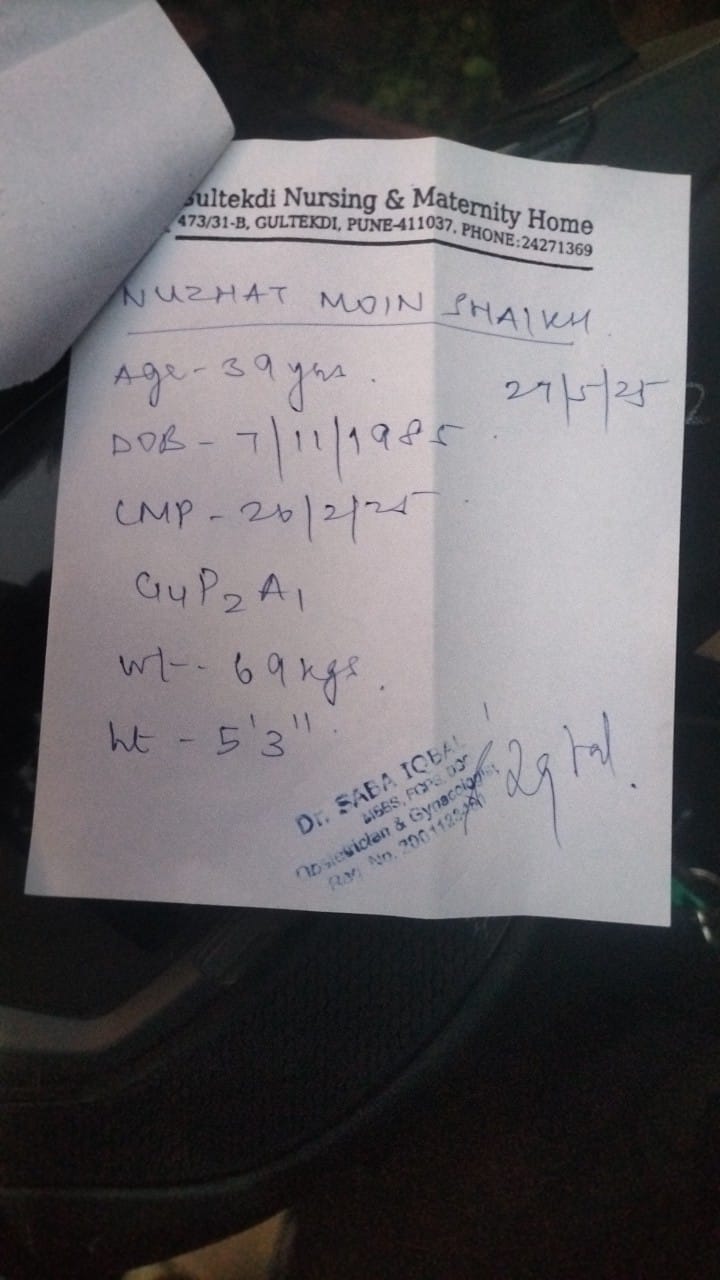 Gultekdi Nursing & Maternity Home
473/31-B, GULTEKDI, PUNE-411037. PHONE:24271369
NUZHAT MOIN SHAIKH.
27/5/25
Age - 39 yrs.
DOB - 7/11/1985.
LMP - 26/2/25.
G4P2A1
wt - 69 kgs.
ht - 5'3".
Dr. SABA IQBAL
MBBS, FCPS, DGO
Obstetrician & Gynacologist
Reg. No.